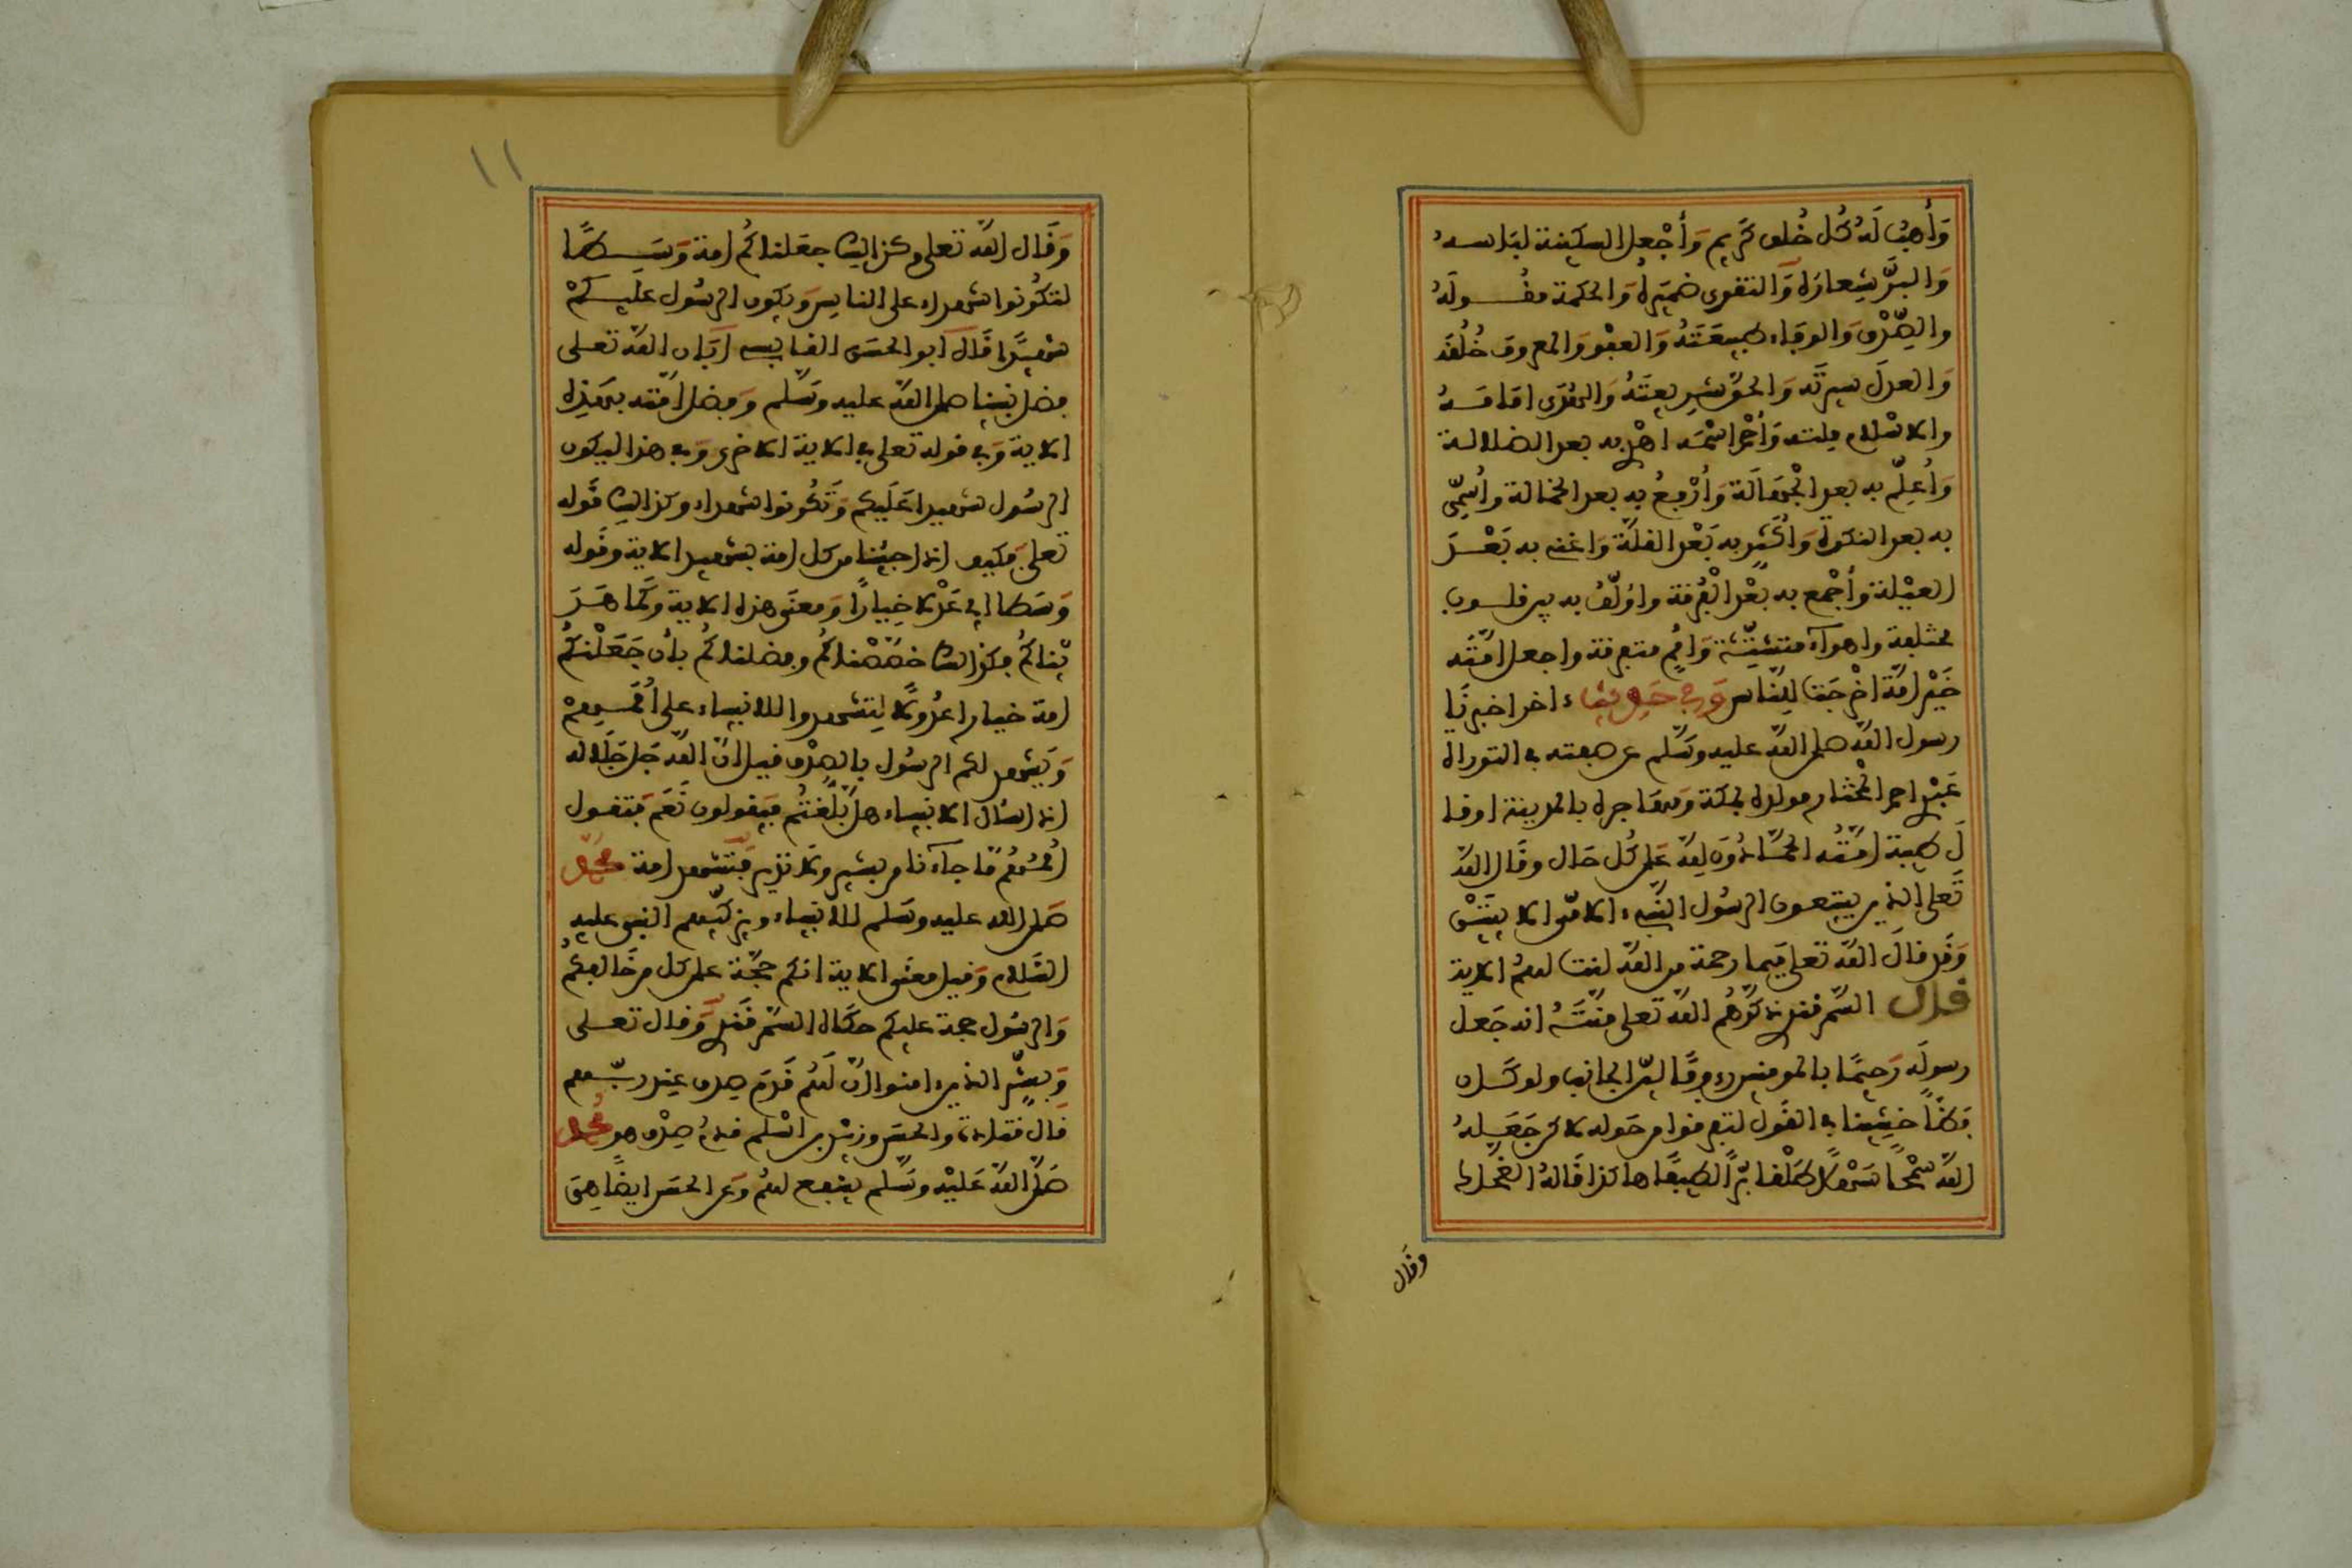 وَأَهَبُ لَهُ كُلَّ خُلُقٍ كَرِيمٍ وَأَجْعَلُ السكينة لباسهُ
وَالبرَّ شِعارَه وَالتقوى ضَميرَهُ وَالحكمة مَعْقُولَهُ
والصِّدْقَ وَالوفاء طبيعَتَهُ وَالعفْوَ وَالمعروفَ خُلُقَه
وَالعدلَ سيرتَه وَالحقَّ شريعتَهُ وَالهُدَى امَامَهُ
والاسْلام ملته وَأحْمد اسْمَه اهْدى به بعد الضلالة
وَأُعَلِّم به بعد الْجَهَالَة وَأَرْفعُ به بعد الخمالة وأُسَمِّى
به بعد النكرة وَأُكَثِّر به بَعْد القلَّة وَاغنى به بَعْدَ
العَيْلة وَأَجْمع به بعْد الْفُرْقة وأؤلّفُ به بين قلوب
مختلفة واهوآء متشتِّتَة وَأُمَمٍ متفرقة واجعل امّتَه
خَيْرَ امّة اخْرجَت لِلنَّاس وَفى حَديث ءاخر اخبرنَا
رسول اللَّه صلى اللَّه عليه وسَلّم عن صفته فى التوراة
عَبْدى احمد الْمُخْتار مولده بمكة وَمهَاجره بالمدينة اوقا
لَ طيبة امّتُهُ الحمّادُونَ لله عَلى كُل حَال وقَال اللَّه
تَعلى الذين يتبعون الرسُول النَّبىء الامّى الايَتَيْن
وَقَد قالَ اللَّه تعلى فبما رحمة من اللَّه لنت لهُمُ الاية
قال السّمرقندى ذكّرهُم اللَّه تعلى مِنَّتَهُ انه جَعل
رسولَه رَحِيمًا بالمومنين رءوفًا ليّن الجانب ولو كَان
فظًّا خشِينا فى القَول لتفرقوا من حَوله لاكن جَعَلهُ
اللَّه سَمْحًا سَهْلًا طَلْقا بَرًّا لطيفًا هاكذا قَالهُ الضحاك
وقال
١١
وَقَال اللَّه تعلى وكذالك جعَلناكُم امة وَسَطًا
لتكُونوا شهداء على الناس وَيكون الرسُول علَيكُمْ
شهِيدًا قَالَ ابو الحسَن القابسى اَبَان اللَّه تعلى
فضل نبينا صلى اللَّه عليه وسَلّم وَفضل امّته بهَذِه
الاية وَفى قوله تعلى فى الاية الاخرى وَفى هذا ليكون
الرسُول شهيدا عَلَيكم وَتَكُونوا شهداء وكذالك قَوله
تعلى فَكيف اذا جِئنا من كل امة بشهيد الاية وقَوله
وَسَطا اى عَدْلا خِيارًا وَمعنَى هذه الاية وَكَما هَدَ
يْناكُمْ فكذالك خصّصْناكُم وفضلناكُم بأن جَعَلْنكُم
امة خيارا عدُولًا لِتشهدوا للانبياء على أُمَمِهِمْ
وَيَشهد لكم الرسُول بالصدْق قيل انّ اللَّه جَل جَلَاله
اذا سَال الانبياء هل بَلَّغتُم فيَقولون نَعَم فتقول
أُمَمُهُم مَا جآءنا من بشير وَلا نذير فَتشهد امة مُحَمَّد
صَلى الله عليه وسَلم للانبياء ويزكّيهم النبى عليه
السَّلام وَقيل معنَى الاية انكم حجَّة على كل من خَالفكُم
وَالرسُول حجة عليكم حكَاه السّمرقَندى وَقال تعلى
وَبشِّر الذين ءامنوا انّ لَهُم قَدَم صدق عِند ربّهم
قَالَ قتادة وَالحسَن وزيْد بن اسْلم قدمُ صِدْق هو مُحمد
صَلَّى اللَّه عَلَيْه وسَّلم يشفع لهُم وَعن الحسَن ايضًا هِىَ